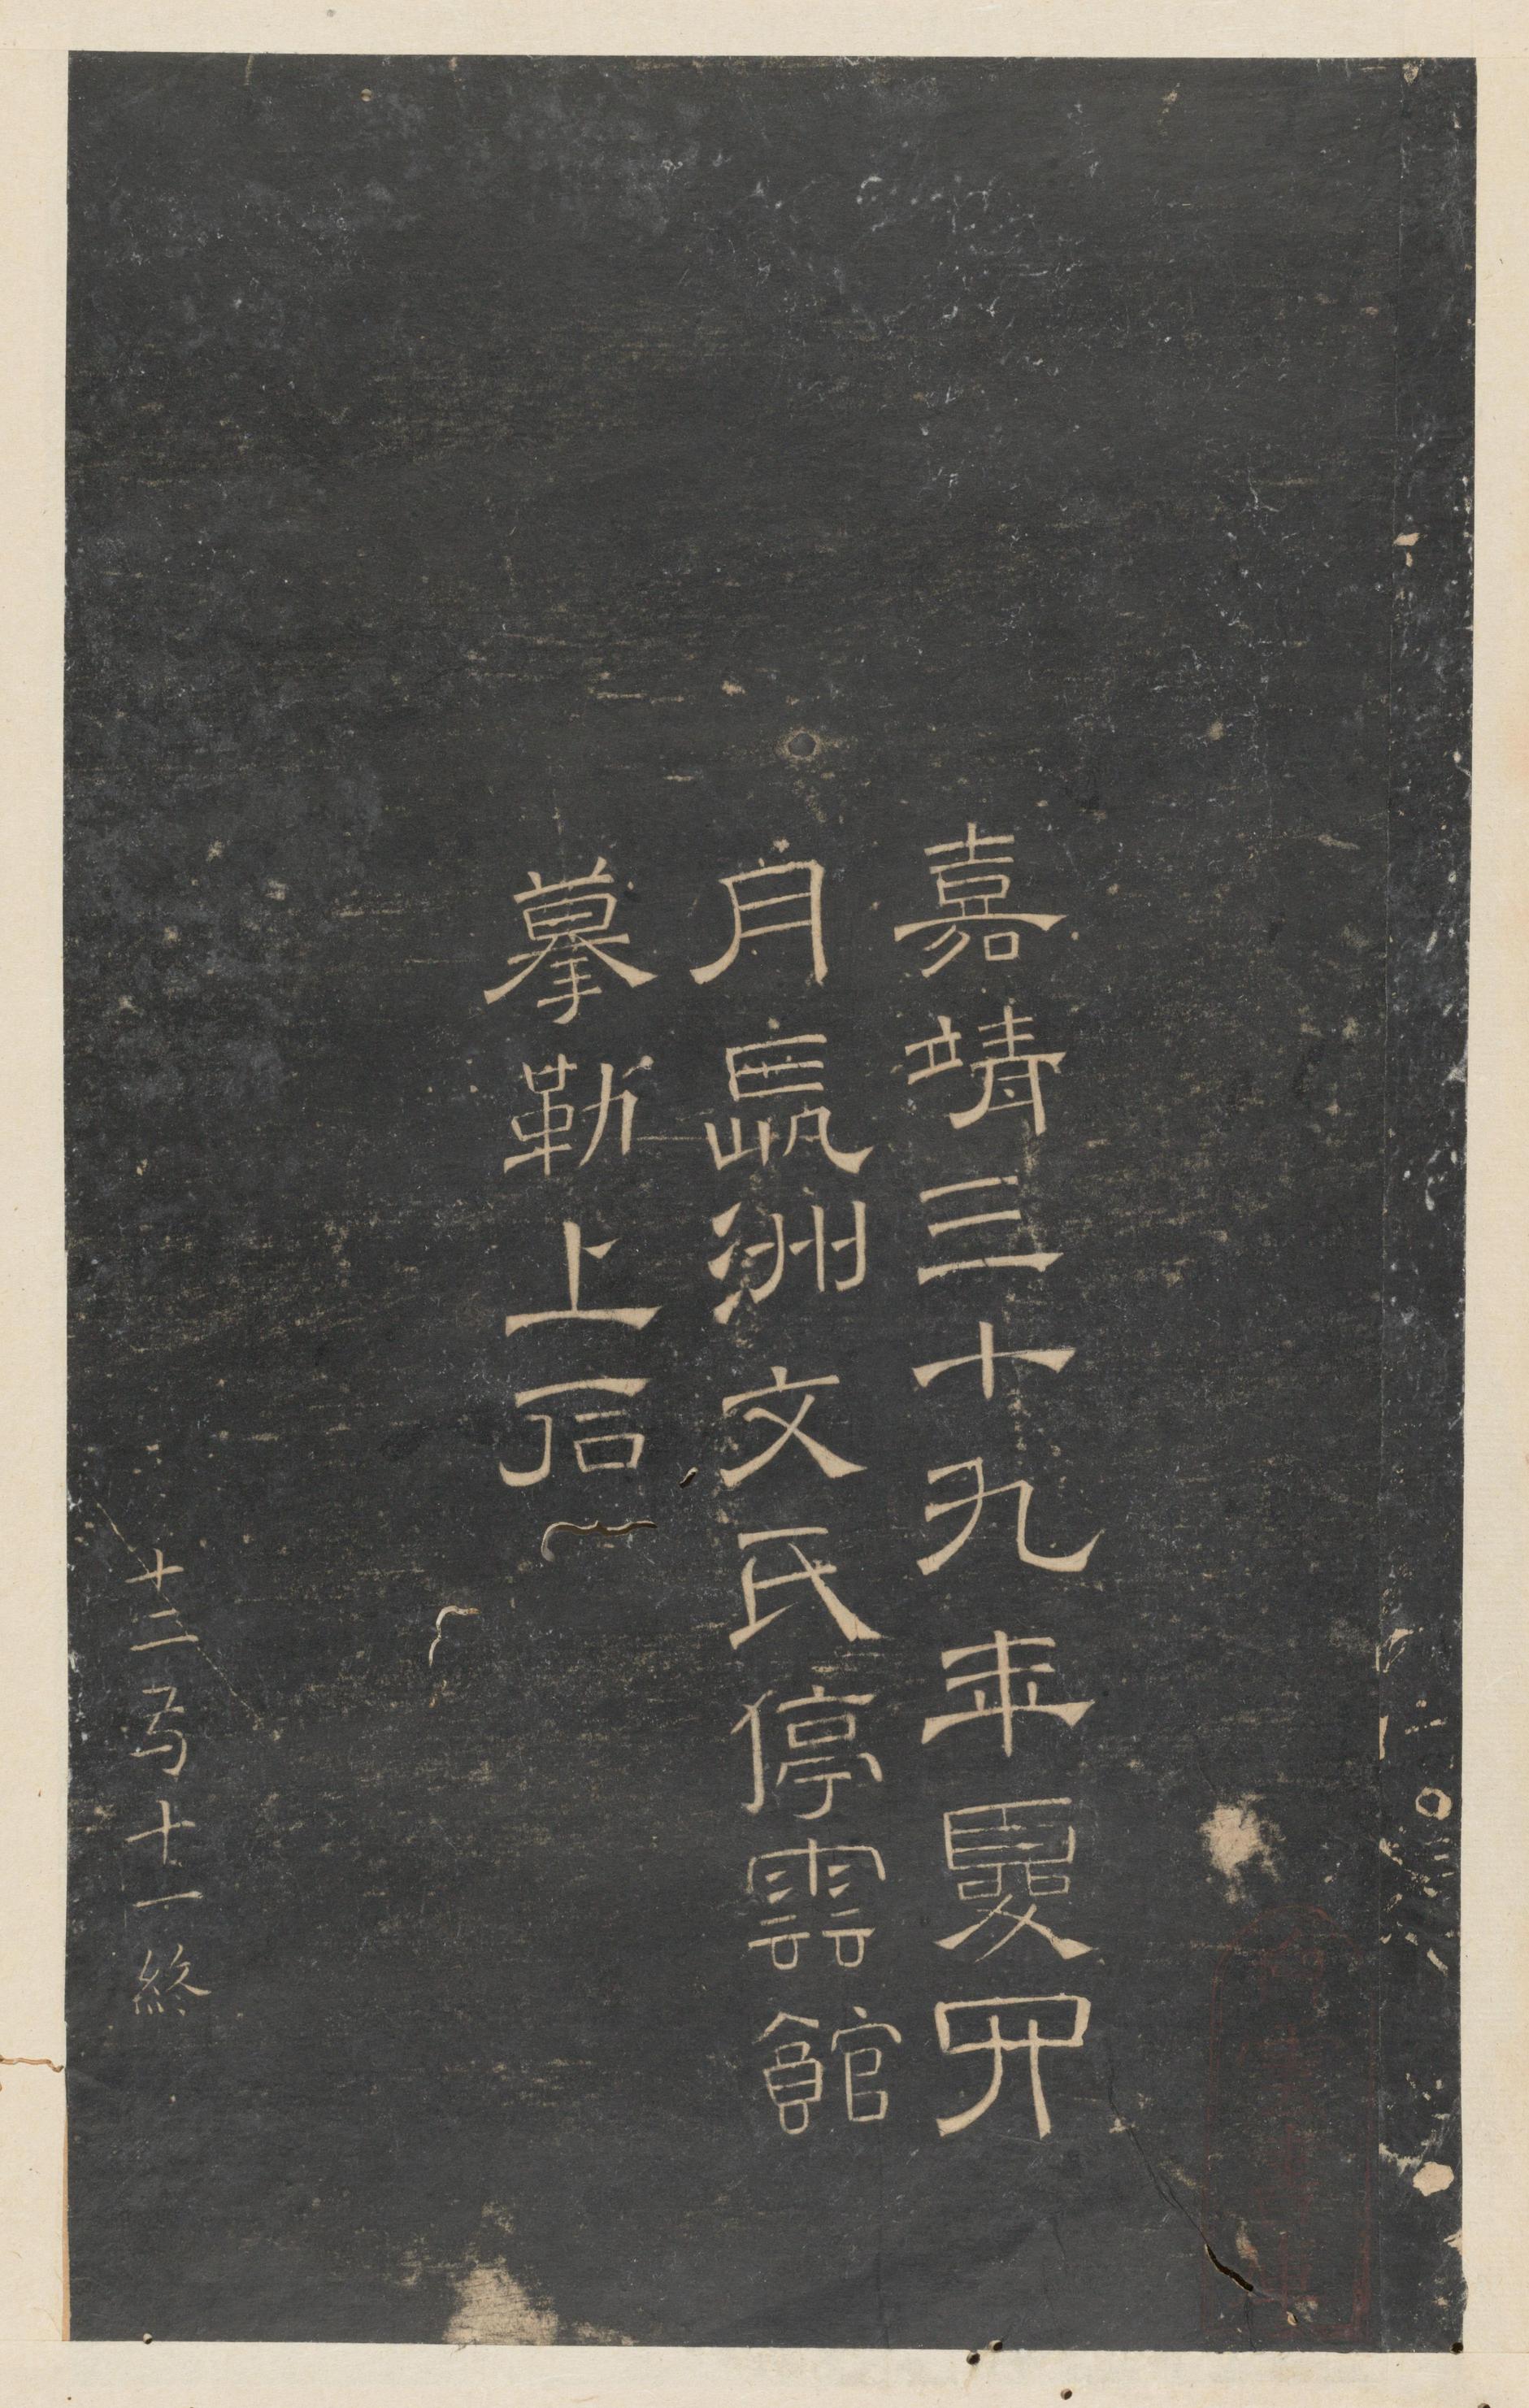 嘉靖三十九年夏四
月長洲文氏停雲館
摹勒上石
十二 十一終